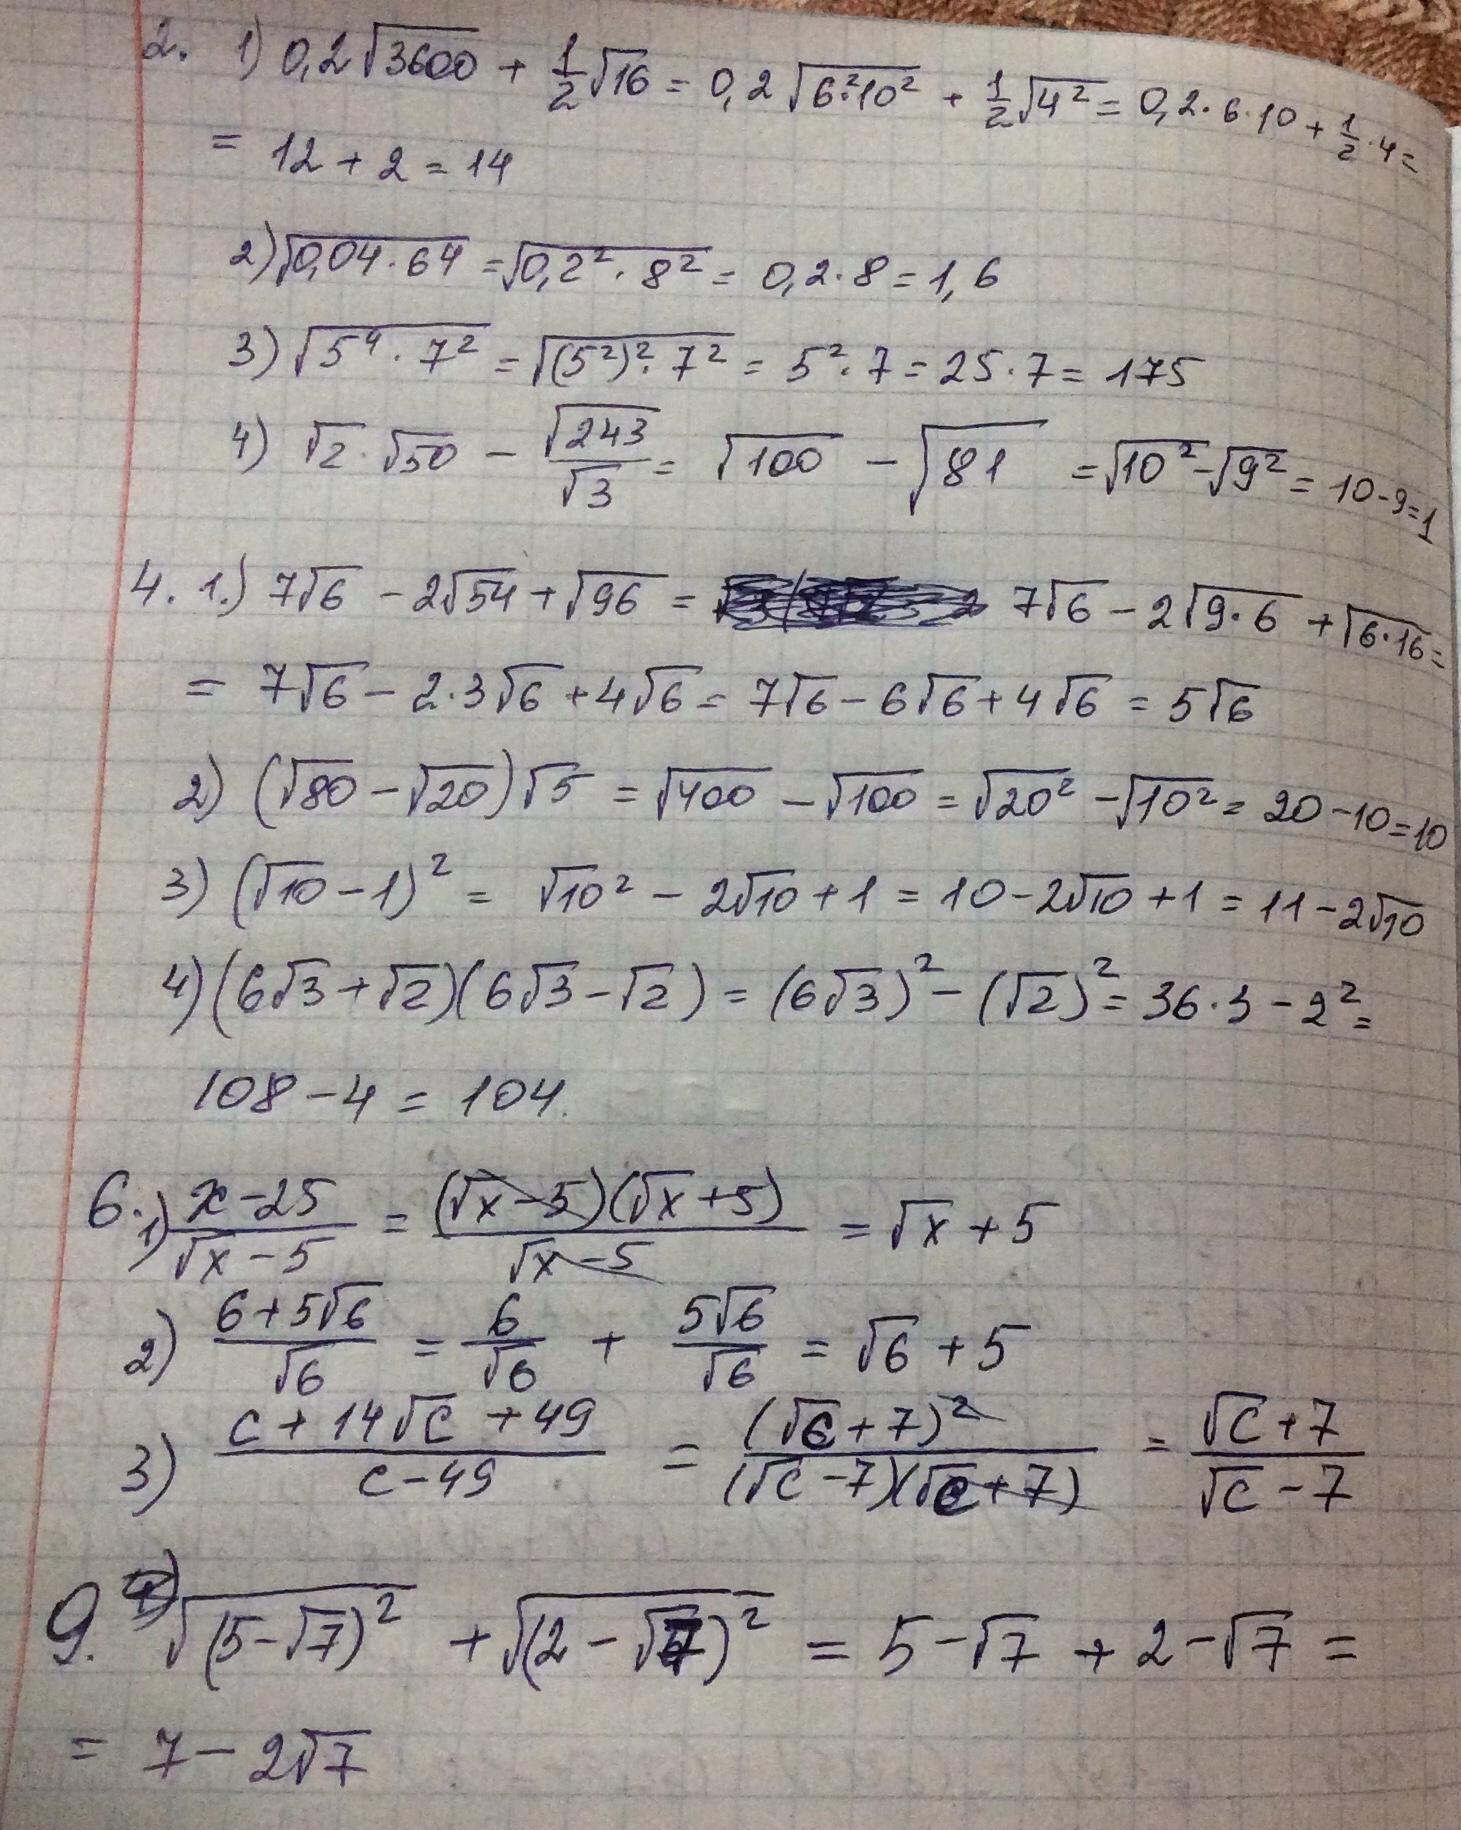 2. 1) 0,2√3600 + 1/2√16 = 0,2√6²·10² + 1/2√4² = 0,2·6·10 + 1/2·4 =
= 12 + 2 = 14
2) √0,04·64 = √0,2²·8² = 0,2·8 = 1,6
3) √5⁴·7² = √(5²)²·7² = 5²·7 = 25·7 = 175
4) √2·√50 - √243/√3 = √100 - √81 = √10² - √9² = 10-9=1
4. 1.) 7√6 - 2√54 + √96 = 7√6 - 2√9·6 + √6·16 =
= 7√6 - 2·3√6 + 4√6 = 7√6 - 6√6 + 4√6 = 5√6
2) (√80 - √20)√5 = √400 - √100 = √20² - √10² = 20-10=10
3) (√10 - 1)² = √10² - 2√10 + 1 = 10 - 2√10 + 1 = 11 - 2√10
4) (6√3 + √2)(6√3 - √2) = (6√3)² - (√2)² = 36·3 - 2² =
108 - 4 = 104.
6. 1) x-25/√x-5 = (√x-5)(√x+5)/√x-5 = √x + 5
2) 6+5√6/√6 = 6/√6 + 5√6/√6 = √6 + 5
3) c+14√c+49/c-49 = (√c+7)²/(√c-7)(√c+7) = √c+7/√c-7
9. √(5-√7)² + √(2-√7)² = 5-√7 + 2-√7 =
= 7 - 2√7